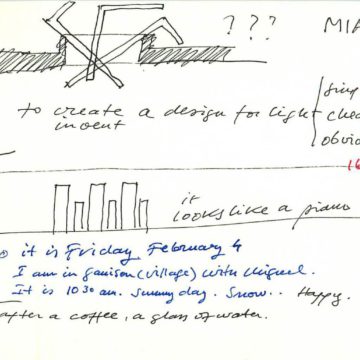 ? ? ? MIA
to create a design for light
invent
simp
chea
obvio
16
it
looks like a piano
it is Friday, February 4
I am in garrison (village) with Miguel.
It is 10 30 am. Sunny day. Snow.. Happy.
after a coffee, a glass of water.